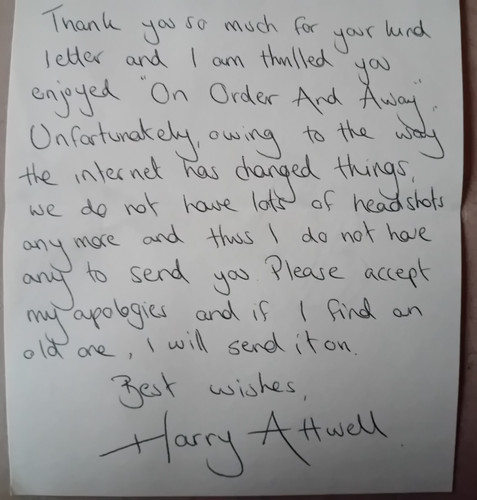 Thank you so much for your kind
letter and I am thrilled you
enjoyed "On Order And Away".
Unfortunately, owing to the way
the internet has changed things,
we do not have lots of headshots
any more and thus I do not have
any to send you. Please accept
my apologies and if I find an
old one, I will send it on.
Best wishes,
Harry Attwell.